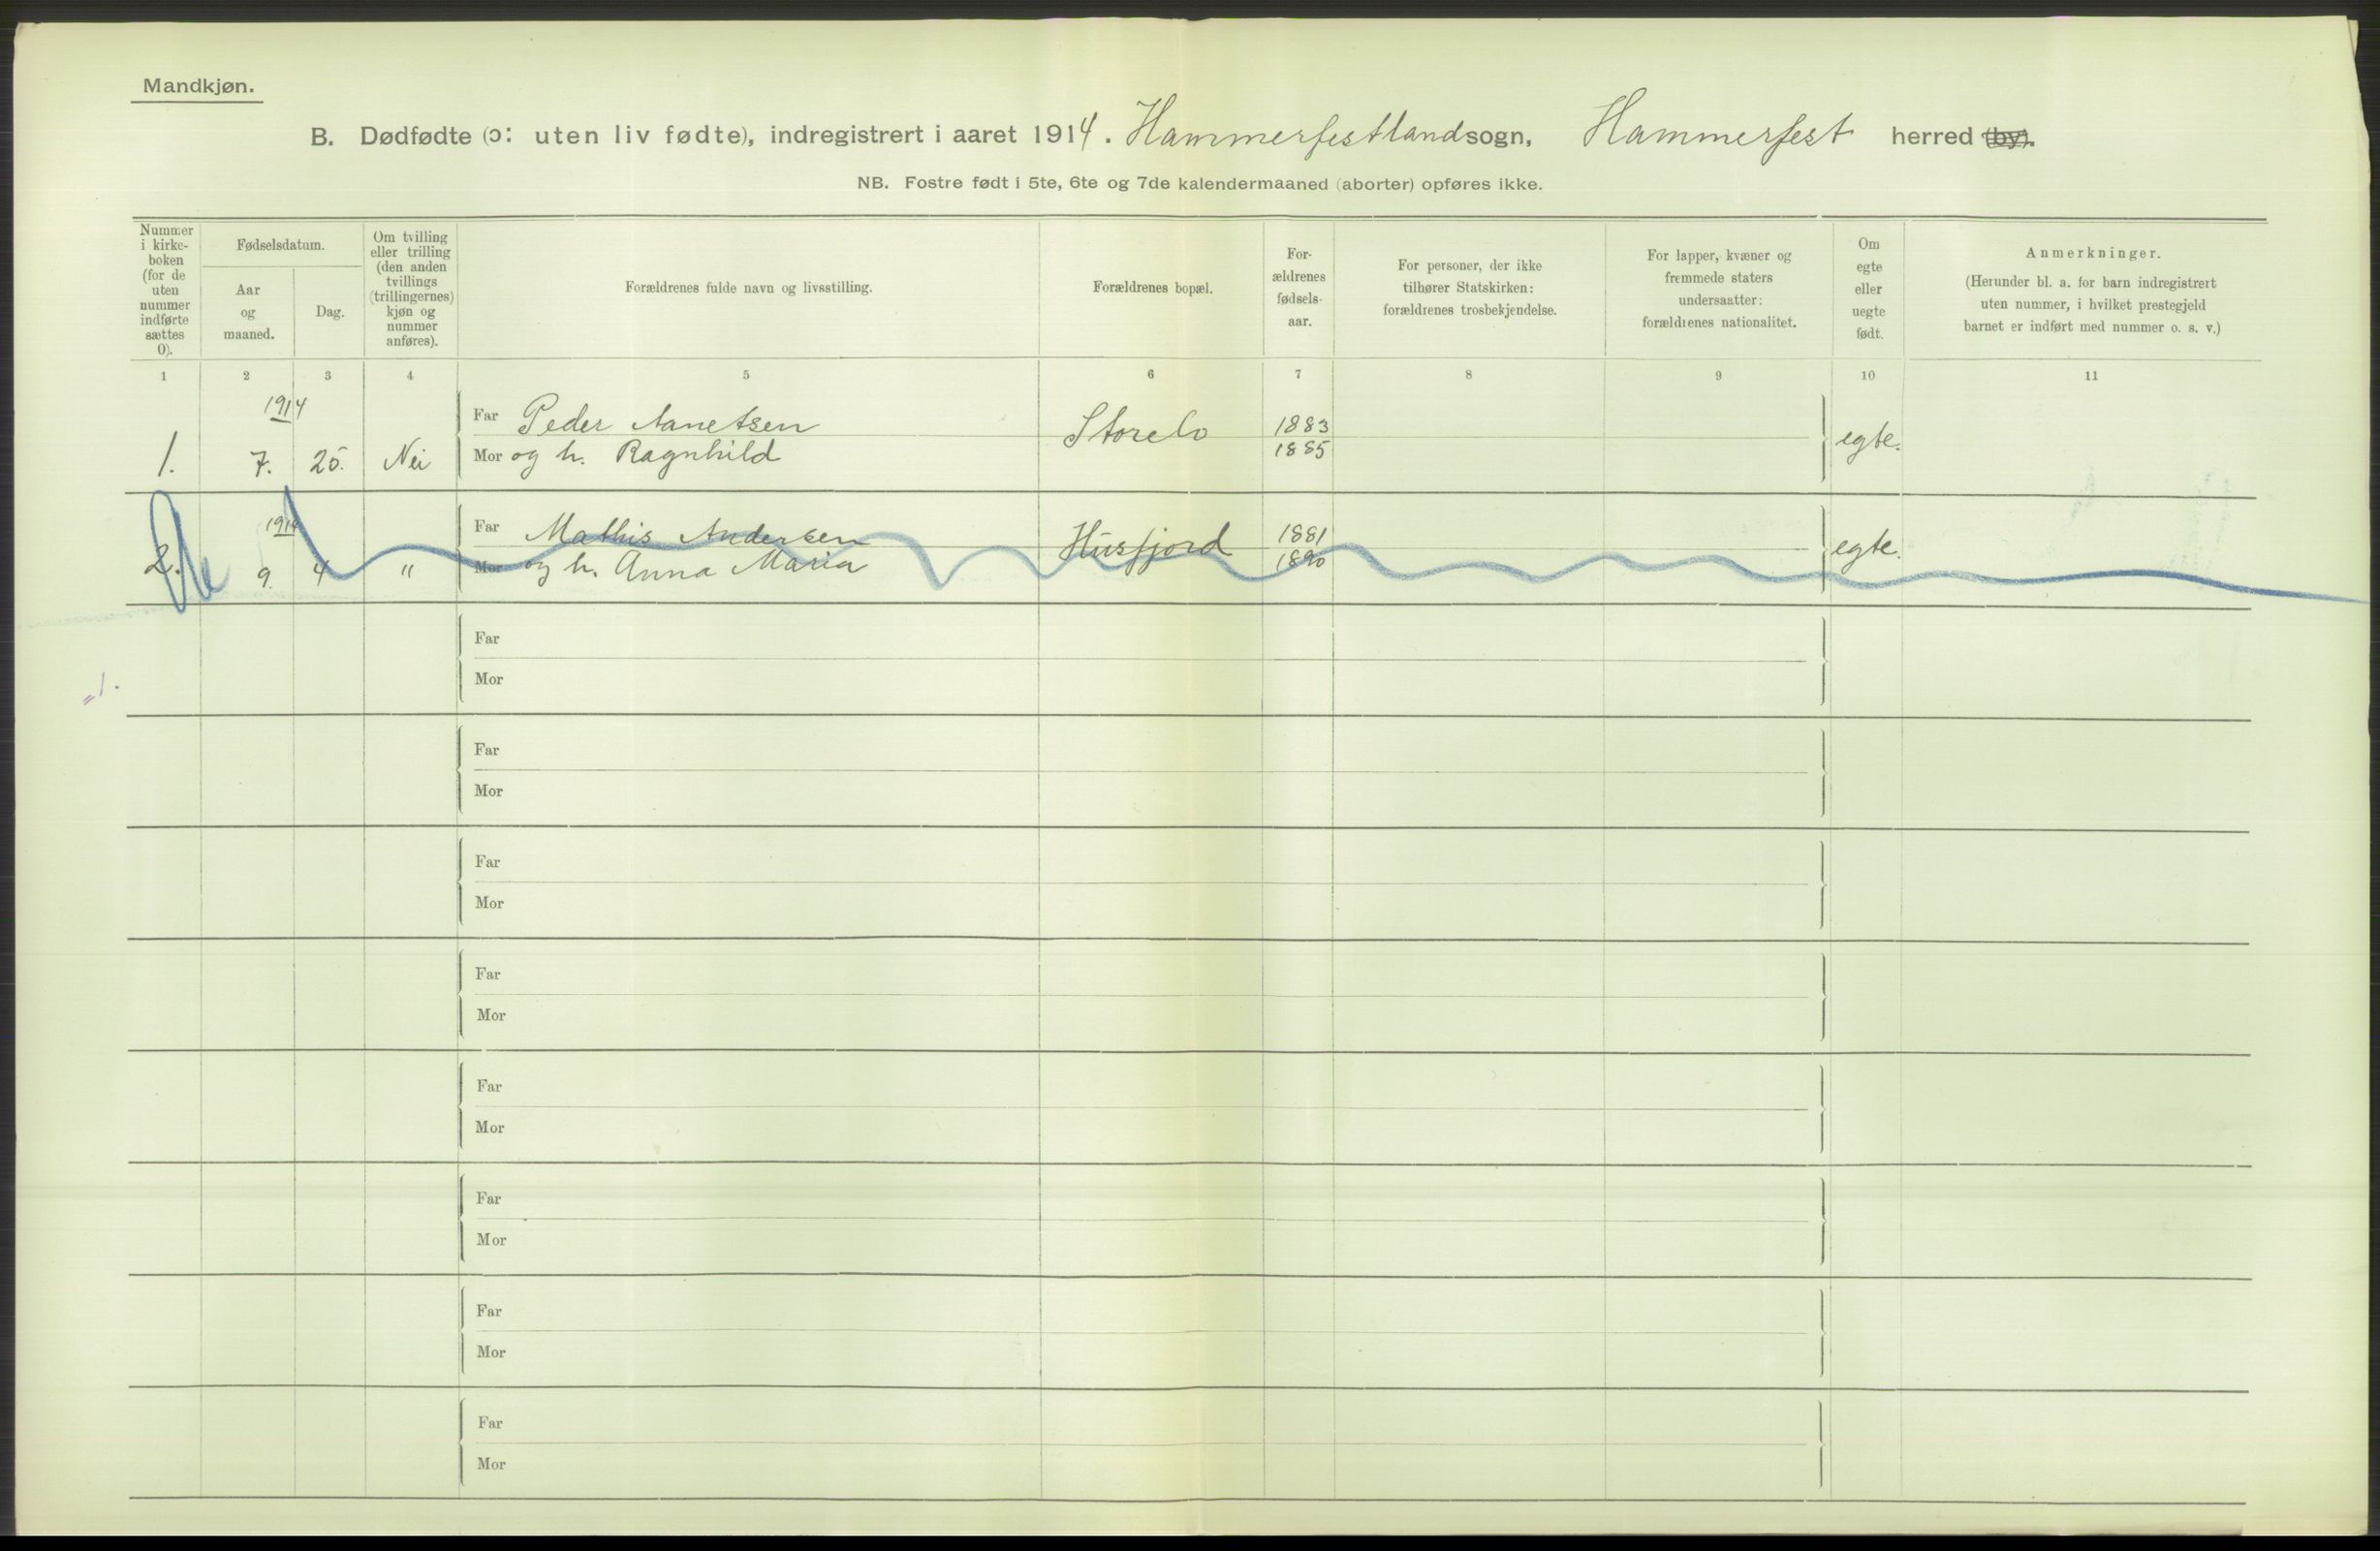 Mandkjøn.
B. Dødfødte (ɔ: uten liv fødte), indregistrert i aaret 1914. Hammerfestlandsogn, Hammerfest herred (by).
NB. Fostre født i 5te, 6te og 7de kalendermaaned (aborter) opføres ikke.
Nummer
i kirke-
boken
(for de
uten
nummer
indførte
sættes
0).
Fødselsdatum.
Aar
og
maaned.
Dag.
Om tvilling
eller trilling
(den anden
tvillings
(trillingernes)
kjøn og
nummer
anføres).
Forældrenes fulde navn og livsstilling.
Forældrenes bopæl.
For-
ældrenes
fødsels-
aar.
For personer, der ikke
tilhører Statskirken:
forældrenes trosbekjendelse.
For lapper, kvæner og
fremmede staters
undersaatter:
forældrenes nationalitet.
Om
egte
eller
uegte
født.
Anmerkninger.
(Herunder bl. a. for barn indregistrert
uten nummer, i hvilket prestegjeld
barnet er indført med nummer o. s. v.)
1 2 3 4 5 6 7 8 9 10 11
1914
Far Peder Aanetsen Storelv 1883
1. 7. 25. Nei Mor og h. Ragnhild 1885 egte.
1914
Far Mathis Andersen Husfjord 1881
2. 9. 4 " Mor og h. Anna Maria 1890 egte.
Far
Mor
Far
Mor
Far
Mor
Far
Mor
Far
Mor
Far
Mor
Far
Mor
Far
Mor